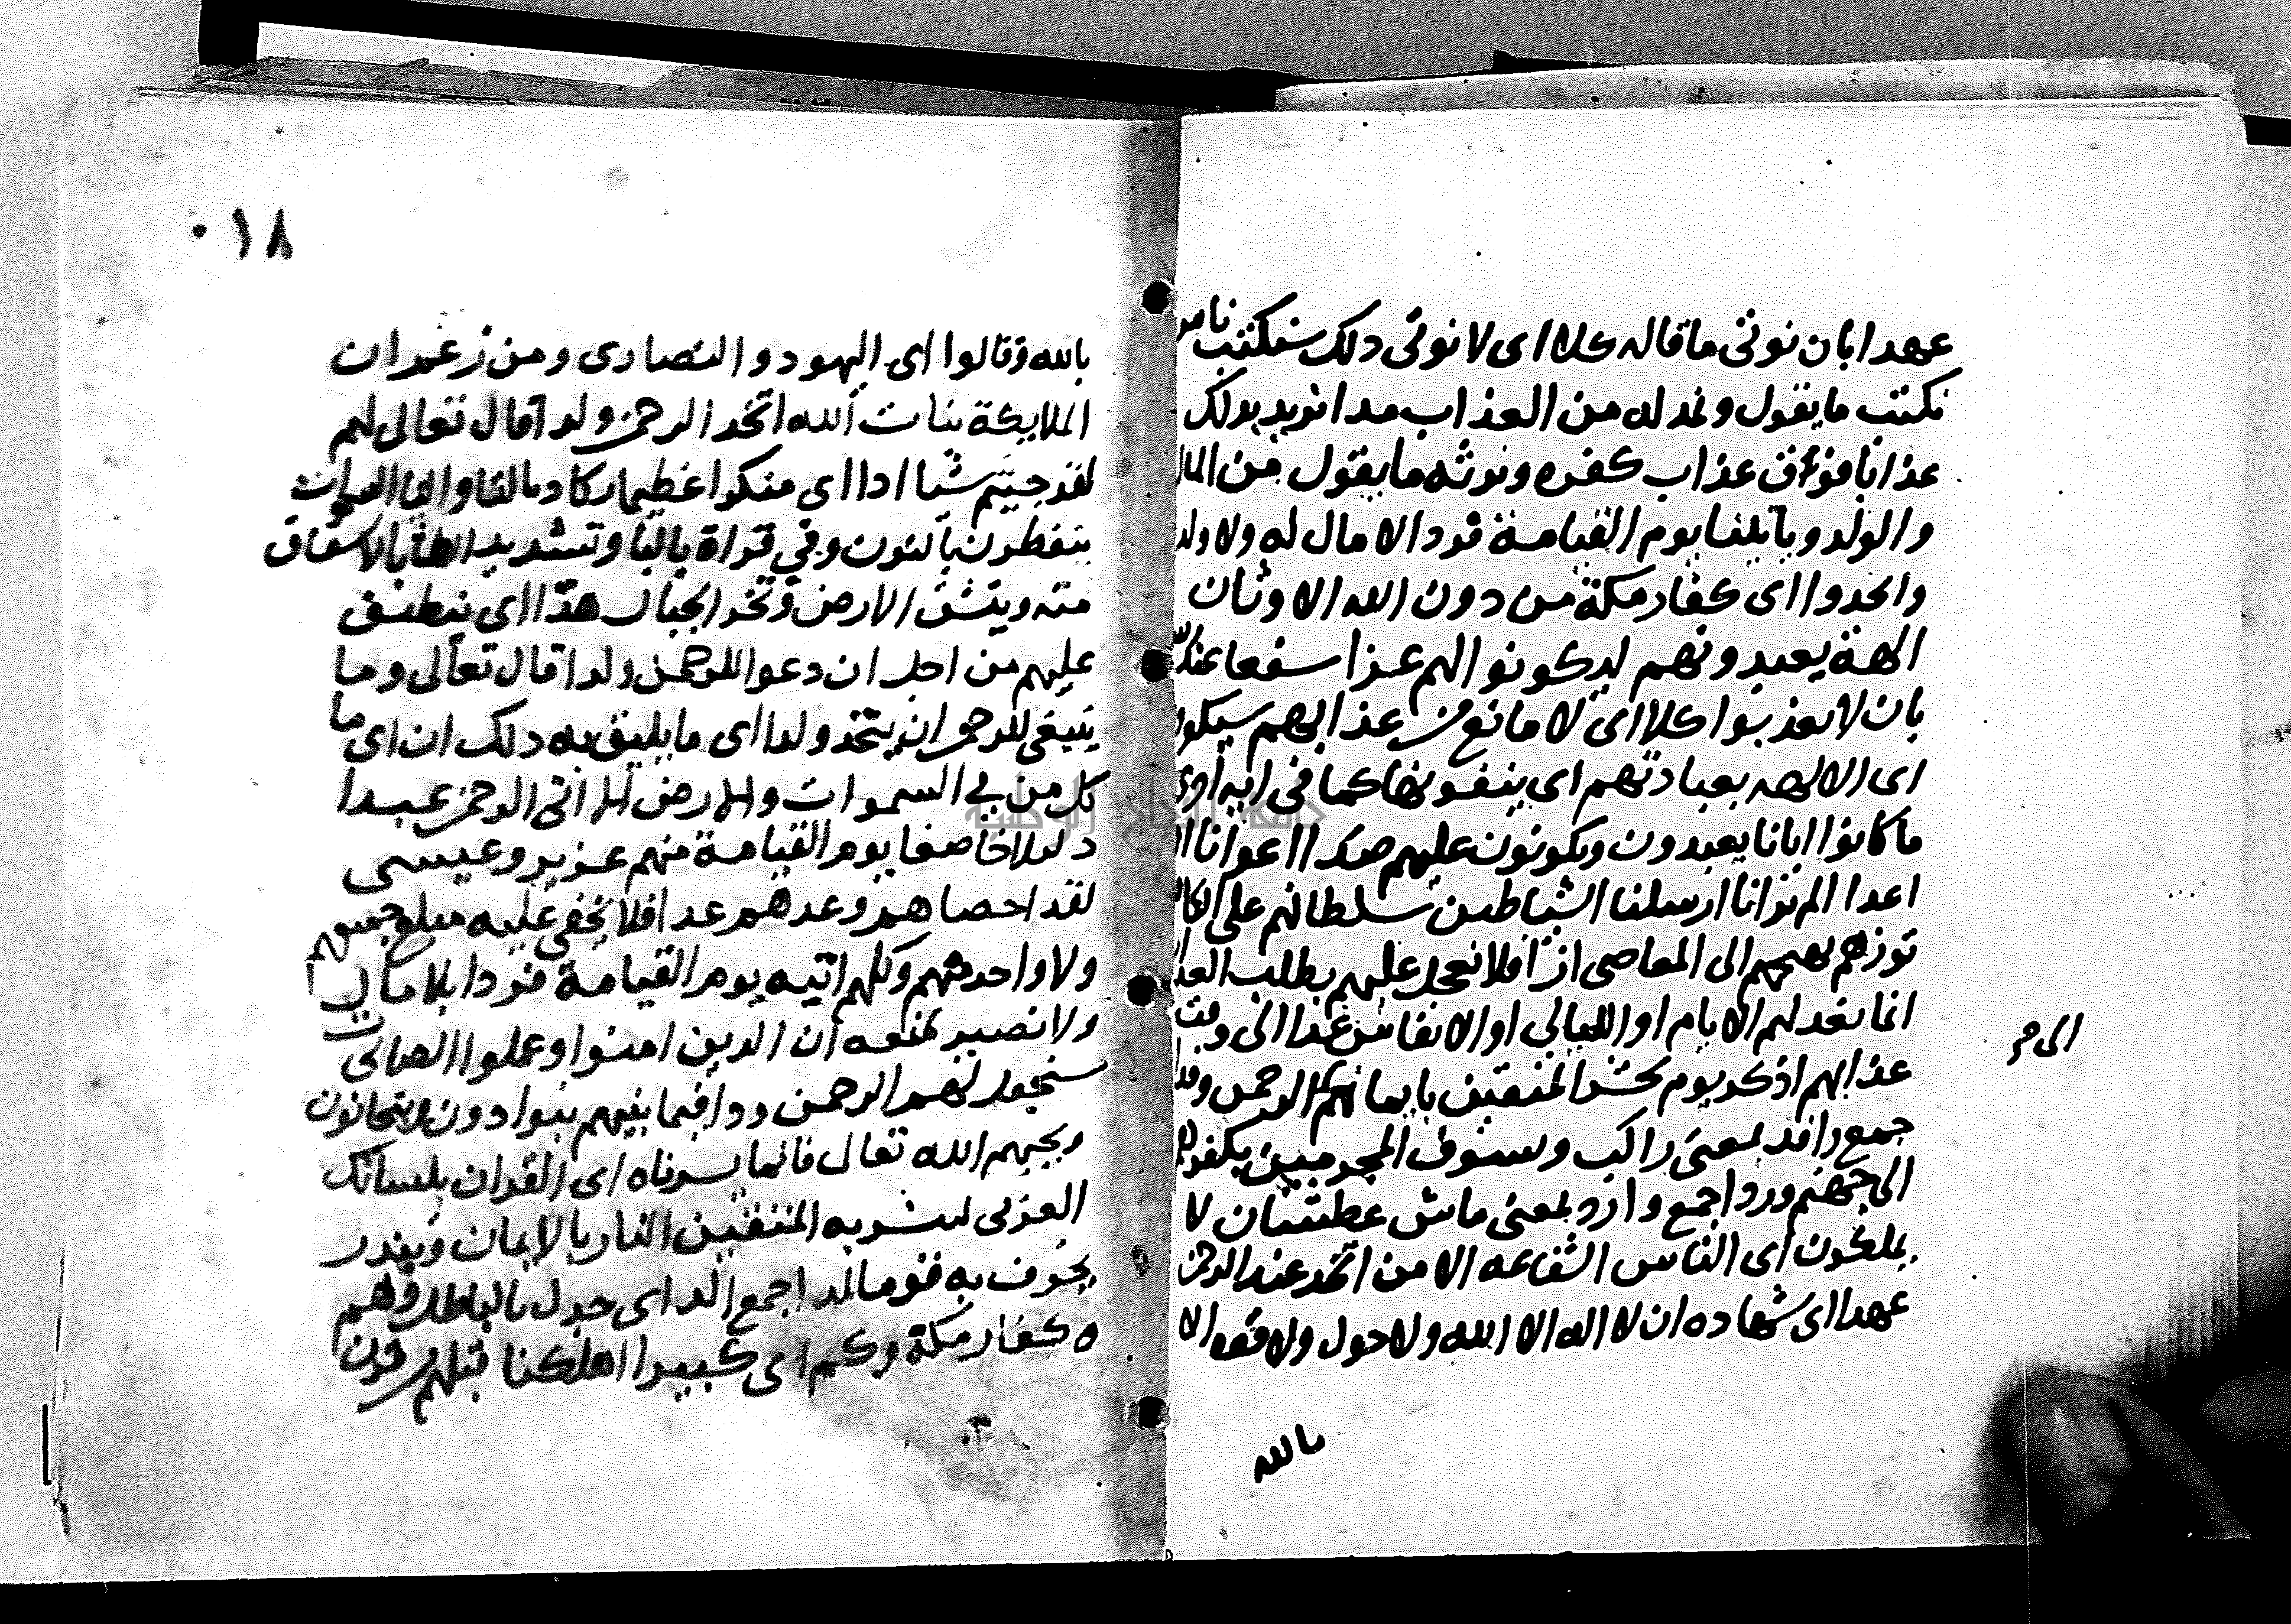 عهدا بان نوتى ما قاله كلا اى لا نوتى دلك سنكتب نامر
نكتب ما يقول ونمد له من العذاب مدا نزيد بدلك
عذابا فوق عذاب كفره ونرثه ما يقول من المال
والولد وياتينا يوم القيامة فردا لا مال له ولا ولد
واتخدوا اى كفار مكة من دون الله الاوثان
الهة يعبدونهم ليكونوا لهم عزا سفعا عند
بان لا يعذبوا كلا اى لا مانع من عذابهم سيكفرون
اى الالهه بعبادتهم اى ينفونها كما فى ايه اخرى
ما كانوا ايانا يعبدون ويكونون عليهم ضدا اعوانا
اعدا الم تر انا ارسلنا الشياطين سلطانهم على
توزهم تهيجهم الى المعاصى ازا فلا تعجل عليهم بطلب العذ
انما نعد لهم الايام او الليالى او الانفاس عدا الى وقت
عذابهم اذكر يوم نحشر المتقين بايمانهم الى الرحمن وفدا
جمع وافد بمعنى راكب ونسوق المجرمين بكفرهم
الى جهنم وردا جمع وارد بمعنى ماش عطشان لا
يملكون اى الناس الشفاعه الا من اتخد عند الرحمن
عهدا اى شهاده ان لا اله الا الله ولا حول ولا قوه الا
بالله
٠١٨
بالله وقالوا اى اليهود والنصارى ومن زعم ان
الملايكة بنات الله اتخد الرحمن ولدا قال تعالى لهم
لقد جيتم شيا ادا اى منكرا عظيما تكاد بالتا واليا السموات
ينفطرن بالنون وفى قراة بالتا وتشديد الطا بالانشقاق
منه وينشق الارض وتخر الجبال هدا اى ينطبق
عليهم من اجل ان دعوا للرحمن ولدا قال تعالى وما
ينبغى للرحمن ان يتخذ ولدا اى ما يليق به دلك ان اى ما
كل من فى السموات والارض الا اتى الرحمن عبدا
دليلا خاضعا يوم القيامة منهم عزير وعيسى
لقد احصاهم وعدهم عدا فلا يخفى عليه مبلغ جميعهم
ولا واحد منهم وكلهم اتيه يوم القيامة فردا بلا مال
ولا نصير يمنعه ان الدين امنوا وعملوا الصالحات
سنجعل لهم الرحمن ودا فيما بينهم يتوادون ويتحابون
ويحبهم الله تعالى فانما يسرناه اى القران بلسانك
العربى لتبشر به المتقين النار بالايمان وتندر
يخوف به قوما لدا جمع الد اى جدل بالباطل وهم
ه كفار مكة وكم اى كبيرا اهلكنا قبلهم من قرن